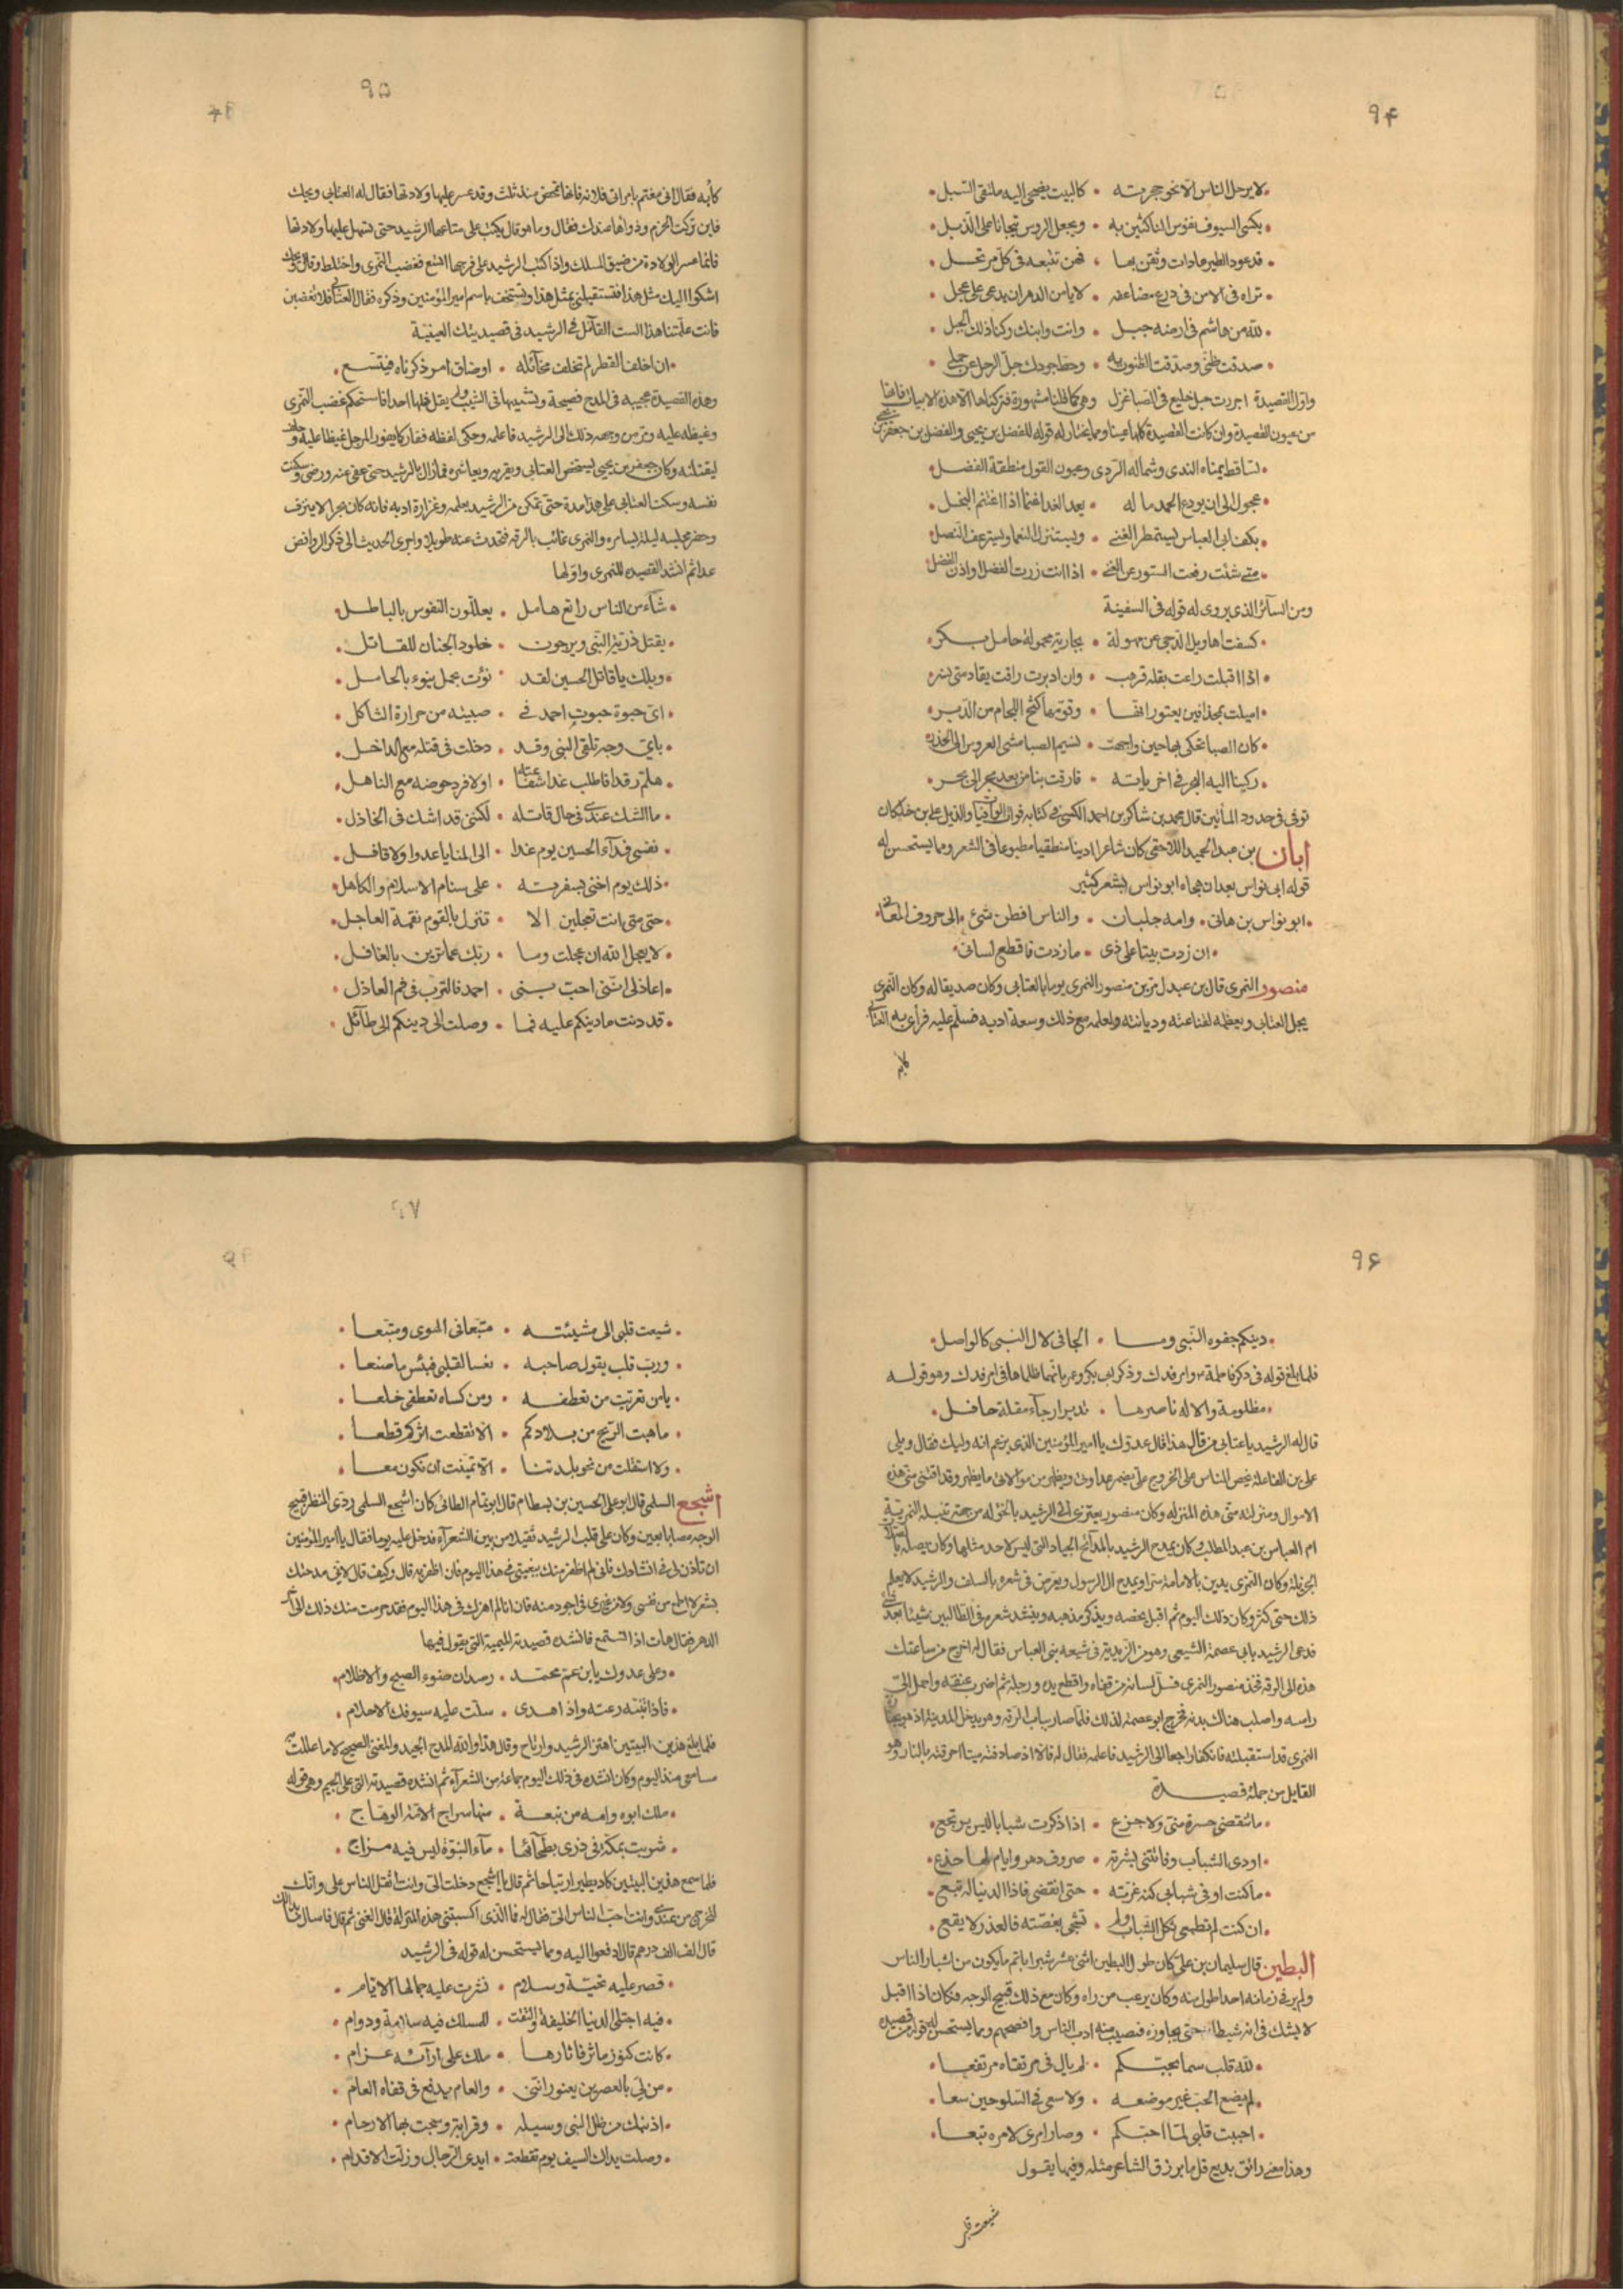 ۹۴
لا يرحل الناس الا نحو حجرته • كالبيت يضحى اليه ملتقى السبل
يكسى السيوف نفوس الناكثين به • ويجعل الروس تيجانا على الذبل
قد عود الطير عادات وثقن بها • فهن تتبعه فى كل مرتحل
تراه فى الامن فى درع مضاعفة • لا يامن الدهر ان يدعى على عجل
لله من هاشم فى ارضه جبل • وانت وابنك ركنا ذلك الجبل
صدقت ظنى وصدقت الظنون به • وحط جودك حل الرحل عن جملى
واول القصيدة اجررت حبل خليع فى الصبا غزل وهى كما قلنا مشهورة فتركناها الا هذه الابيات فانها
من عيون القصيدة وان كانت القصيدة كلها عينا ومما يختار له قوله للفضل بن يحيى والفضل بن جعفر بن يحيى
تساقط يمناه الندى وشماله الردى وعيون القول منطقة الفضل
عجول الى ان يودع الحمد ماله • يعد الغدا غنما اذا اغتنم البخل
بكف ابى العباس يستمطر الغنى • ويستنزل النعما ويسترعف النصل
متى شئت رفعت الستور عن الغنى • اذا انت زرت الفضل او اذن الفضل
ومن السائر الذى يروى له قوله فى السفينة
كشفت اهاويل الدجى عن مهولة • بجارية محمولة حامل بكر
اذا اقبلت راعت بقلة قرهب • وان ادبرت راقت بقادمتى نسر
اميلت بمجذافين يعتورانها • وقومها كبح اللجام من الدبر
كان الصبا تحكى بها حين واجهت • نسيم الصبا مشى العروس الى الخدر
ركبنا اليه البحر فى اخرياته • فارقت بنا من بعد بحر الى بحر
توفى فى حدود المأتين قال محمد بن شاكر بن احمد الكتبى فى كتابه فوات الوفيات والذيل على بن خلكان
ابان بن عبد الحميد اللاحقى كان شاعرا اديبا منطقيا مطبوعا فى الشعر ومما يستحسن له
قوله ابى نواس بعد ان هجاه ابو نواس بشعر كثير
ابو نواس بن هانى • وامه جلبان • والناس افطن شئ • الى حروف المعانى
ان زدت بيتا على ذى • ما زدت فاقطع لسانى
منصور النمرى قال بن عبدل مر بن منصور النمرى يوما بالعتابى وكان صديقا له وكان النمرى
يجل العتابى ويعظمه لقناعته وديانته ولعلمه مع ذلك وسعة ادبه فسلم عليه فراى به العتابى
۹۵
كأبه فقال انى مغتم بامراتى فلانه فانها تمخض منذ ثلث وقد عسر عليها ولادتها فقال له العتابى ويحك
فاين تركت الحزم وذواها عندك فقال وما هو قال يكتب على متاعها الرشيد حتى تسهل عليها ولادتها
فانما عسر الولادة من ضيق المسلك واذا كتب الرشيد على فرجها اتسع فغضب النمرى واختلط وقال ويحك
اشكوا اليك مثل هذا فتستقبلنى بمثل هذا وتستخف باسم امير المؤمنين وذكره فقال العتابى فلا تغضبن
فانت علمتنا هذا الست القائل فى الرشيد فى قصيدتك العينية
ان اخلف القطر لم تخلف مخائله • او ضاق امر ذكرناه فيتسع
وهذه القصيدة عجيبه فى المدح فصيحة وتشبيهها فى الشيب ولم يقل قبلها احد فاستحكم غضب النمرى
وغيظه عليه ومر من وجهه ذلك الى الرشيد فاعلمه وحكى لفظه فغار كما يفور المرجل غيظا عليه وحلف
ليقتلنه وكان جعفر بن يحيى يستخص العتابى ويقربه ويعاشره فما زال بالرشيد حتى عفى عنه ورضى وسكت
نفسه وسكت العتابى على هذا مدة حتى تمكن من الرشيد بعلمه وغزارة ادبه فانه كان بحرا لا ينزف
وحضر مجلسه ليلة يسامره والنمرى غائب بالرقة فتحدث عنه طويلا واجرى الحديث الى ذكر الروافض
عدا ثم انشد القصيدة للنمرى واولها
شاء من الناس راتع هامل • يعللون النفوس بالباطل
يقتل ذرية النبى ويرجون • خلود الجنان للقاتل
ويلك يا قاتل الحسين لقد • نؤت بحمل ينوء بالحامل
اى حبوة حبوت احمد فى • صبيته من حرارة الثاكل
باى وجه تلقى النبى وقد • دخلت فى قتله مع الداخل
هلم رقدا فاطلب غدا شفاعته • اولا فرد حوضه مع الناهل
ما الشك عندى فى حال قاتله • لكننى قد اشك فى الخاذل
نفسى فداء الحسين يوم غدا • الى المنايا عدوا ولا قافل
ذلك يوم اخنى بسفرته • على سنام الاسلام والكاهل
حتى متى انت تعجلين الا • تنزل بالقوم نقمة العاجل
لا يعجل الله ان عجلت وما • ربك عما ترين بالغافل
اعاذلى اننى احب بنى • احمد فالترب فى فم العاذل
قد دنت ما دينكم عليه فما • وصلت الى دينكم الى طائل
۹۶
دينكم جفوه النبى وما • الجافى لال النبى كالواصل
فلما بلغ قوله فى ذكر فاطمة وامر فدك وذكر ابى بكر وعمر بانهما ظلماها فى امر فدك وهو قوله
مظلومة والاله ناصرها • تدير ارجاء مقلة حافل
قال له الرشيد يا عتابى من قال هذا قال عدوك يا امير المؤمنين الذى يزعم انه وليك فقال ويلى
على بن الفاعلة يحض الناس على الخروج على يضمر عداوتى ويظهر من موالاتى ما يظهر وقد اقتنى منى هذه
الاموال ومنزلته منى هذه المنزله وكان منصور يعتزى الى الرشيد بالخؤله من جهة نتيلة النمرية
ام العباس بن عبد المطلب وكان يمدح الرشيد بالمدائح الجياد التى ليس لاحد مثلها وكان يصله
الجزيلة وكان النمرى يدين بالامامة سرا ويمدح ال الرسول ويعرض فى شعره بالسلف والرشيد لا يعلم
ذلك حتى كثر وكان ذلك اليوم ثم اقبل بغضه ويذكر مذهبه وينشد شعره فى الطالبين شيئا بعد شئ
فدعى الرشيد بابى عصمة الشيعى وهو من الزيدية فى شيعه بنى العباس فقال له اخرج من ساعتك
هذه الى الرقة فخذ منصور النمرى فسل لسانه من قفاه واقطع يده ورجله ثم اضرب عنقه واحمل الى
راسه واصلب هناك بدنه فخرج ابو عصمة لذلك فلما صار بباب الرقة وهو يدخل المدينة اذ هو بجنازة
النمرى قد استقبلته فانكفا راجعا الى الرشيد فاعلمه فقال له فالا اذ صادفته ميتا احرقته بالنار وهو
القايل من جملة قصيدة
ما تنقضى حسرة منى ولا جزع • اذا ذكرت شبابا ليس يرتجع
اودى الشباب وفاتتنى بشرته • صروف دهر وايام لها خدع
ما كنت اوفى شبابى كنه غرته • حتى انقضى فاذا الدنيا له تبع
ان كنت لم تطعمى ثكل الشباب ولم • تشجى بغصته فالعذر لا يقع
البطين قال سليمان بن على كان طول البطين اثنى عشر شبرا باتم ما يكون من اشبار الناس
ولم ير فى زمانه احد اطول منه وكان يرعب من راه وكان مع ذلك قبيح الوجه فكان اذا اقبل
لا يشك فى انه شيطان حتى يحاوره فنصيب منه ادب الناس وافصحهم ومما يستحسن له قوله من قصيدة
لله قلب سما بحبكم • لم يال فى مرتقاه مرتفعا
لم يضع الحب غير موضعه • ولا سعى فى السلو حين سعا
احببت قلبى لما احبكم • وصار امرى لامره تبعا
وهذا معنى رائق بديع قل ما يرزق الشاعر مثله وفيها يقول
شيعت قلبى
۹۷
شيعت قلبى الى مشيئته • متبعا فى الهوى ومتبعا
ورب قلب يقول صاحبه • تعسا لقلبى فبئس ما صنعا
يا من تعريت من تعطفه • ومن كساه تعطفى خلعا
ما هبت الريح من بلادكم • الا تقطعت اثركم قطعا
ولا استقلت من نحو بلدتنا • الا تمنيت ان نكون معا
اشجع السلمى قال ابو على الحسين بن بسطام قال ابو تمام الطائى كان اشجع السلمى ردى المنظر قبيح
الوجه مصابا بعين وكان على قلب الرشيد ثقيلا من بين الشعراء فدخل عليه يوما فقال يا امير المؤمنين
ان تاذن لى فى انشادك فانى ان لم اظفر منك ببغيتى فى هذا اليوم فلن اظفر به قال وكيف قال لانى مدحتك
بشعر لا اطمع من نفسى ولا من غيرى فى اجود منه فان انا لم اهزك فى هذا اليوم فقد حرمت منك ذلك الى اخر
الدهر فقال هات اذا نستمع فانشده قصيدته الميمية التى يقول فيها
وعلى عدوك يا بن عم محمد • رصدان ضوء الصبح والاظلام
فاذا تنبه رعته واذا هدى • سلت عليه سيوفك الاحلام
فلما بلغ هذين البيتين اهتز الرشيد وارتاح وقال هذا والله المدح الجيد والمعنى الصحيح لا ما عللت به
مسامعى منذ اليوم وكان انشده فى ذلك اليوم جماعة من الشعراء ثم انشده قصيدته التى على الجيم وهى قوله
ملك ابوه وامه من نبعة • منها سراج الامة الوهاج
شربت بمكة فى ذرى بطحائها • ماء النبوة ليس فيه مزاج
فلما سمع هذين البيتين كاد يطير ارتياحا ثم قال يا اشجع دخلت الى وانت اثقل الناس على وانك
لتخرج من عندى وانت احب الناس الى فقال له فما الذى اكسبتنى هذه المنزلة قال الغنى ثم قال فاسال ما بدا لك
قال الف الف درهم قال ادفعوا اليه ومما يستحسن له قوله فى الرشيد
قصر عليه تحية وسلام • نثرت عليه جمالها الايام
فيه اجتلى الدنيا الخليفة والتقت • للملك فيه سلامة ودوام
كانت كنوز ماثر فاثارها • ملك على ارائه عزام
من لى بالعصرين يعتورانى • والعام يدفع فى قفاه العام
ادنتك من ظل النبى وسيله • وقرابة وشجت بها الارحام
وصلت يداك السيف يوم تقطعت • ايدى الرجال وزلت الاقدام